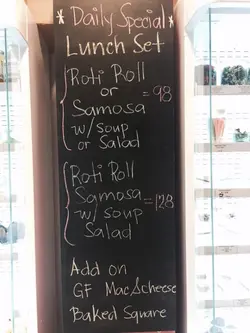 * Daily Special *
Lunch Set
Roti Roll
or
Samosa = 98
w/ soup
or Salad
Roti Roll
Samosa = 128
w/ soup
Salad
Add on
GF Mac&cheese
Baked Square